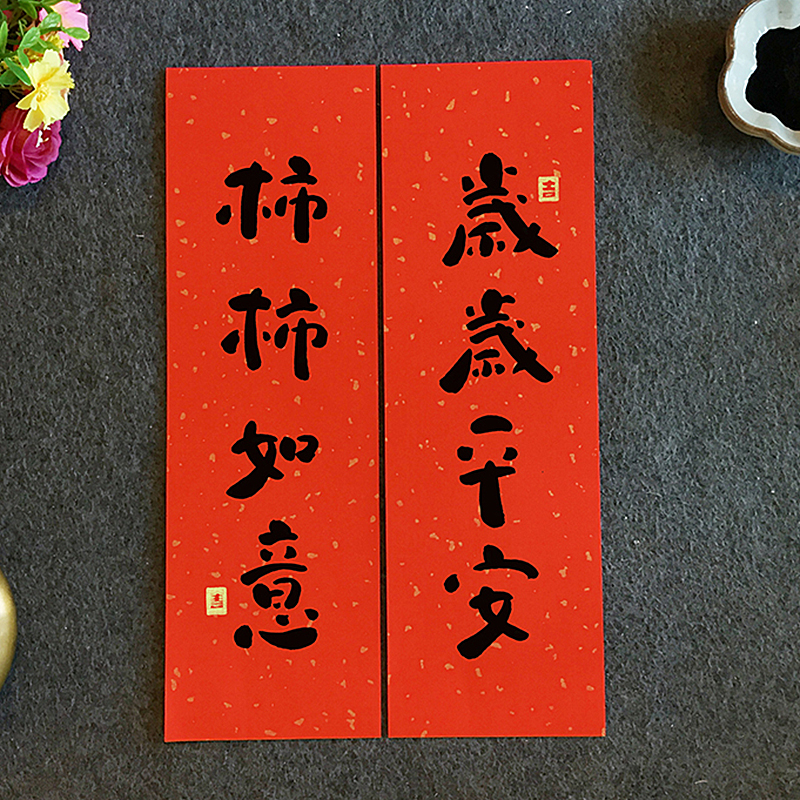 歲歲平安
柿柿如意